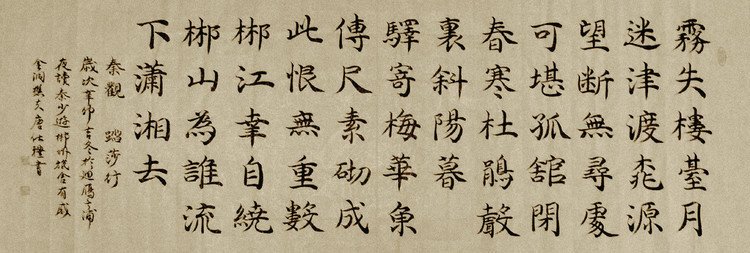 霧失樓臺月
迷津渡桃源
望断無尋處
可堪孤舘閉
春寒杜鵑聲
裏斜陽暮
驛寄梅華魚
傳尺素砌成
此恨無重數
郴江幸自繞
郴山為誰流
下瀟湘去
秦觀 踏莎行
歲次辛卯吉冬於迴鴈之浦
夜讀秦少游郴州旅舍有感
金洞樵夫唐仕書